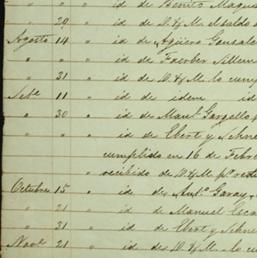 " " " id de Benito Magu
" 29 " id de D. y M. el saldo d
Agosto 14 " id de Agüero Gonzale
" " " id de Faerber Sillem
" 31 " id de D. y M. lo cum
Setbe 11 " id de idem id
" 30 " id de Manl. Gargollo
" " " id de Ebert y Schne
cumplido en 16 de Febre
recibido de D. y M. pr.
Octubre 15 " id de Anto. Garay
" 21 " id de Manuel Esca
" 31 " id de Ebert y Schne
Nove. 21 " id de D. y M. lo cum